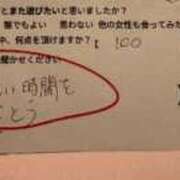 とまた遊びたいと思いましたか?
誰でもよい 思わない 他の女性も会ってみた
中、何点を頂けますか? : 100
聞かせください
い時間を
とう